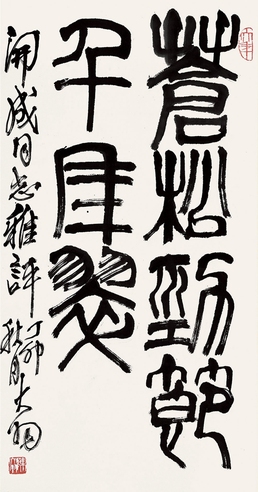 蒼松勁節
千年翠
開成同志雅評
丁卯秋月大羽